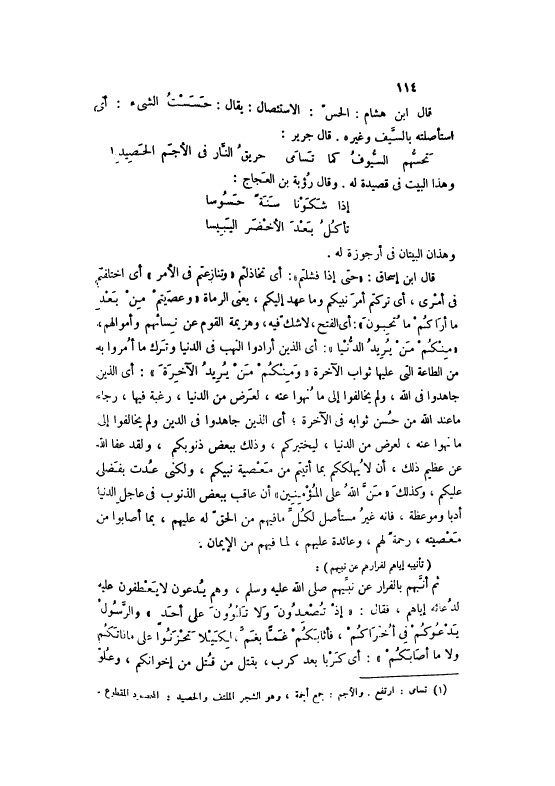 ١١٤
قال ابن هشام : الحسّ : الاستئصال : يقال : حَسَسْتُ الشيء : أى
استأصلته بالسَّيف وغيره . قال جرير :
تَحُسُّهم السُّيوفُ كما تَسامَى حريقُ النَّار فى الأجَم الحَصِيدِ١
وهذا البيت فى قصيدة له . وقال رُؤبة بن العجاج :
إذا شَكَوْنا سَنَةً حَسُوسا
تأكُلُ بَعْدَ الأخْضَر اليَبِيسا
وهذان البيتان فى أرجوزة له .
قال ابن إسحاق : «حتَّى إذا فشلتم»: أى تخاذلتم «وتنازعتم فى الأمر» أى اختلفتم
فى أمْرى ، أى تركتم أمرَ نبيكم وما عهد إليكم ، يعنى الرماة «وعصَيْتم مِنْ بَعْدِ
ما أرَاكُمْ ما تُحِبونَ»: أى الفتح، لاشكّ فيه، وهزيمة القوم عن نسائهم وأموالهم،
«مِنْكُمْ مَنْ يُريدُ الدُّنْيا»: أى الذين أرادوا النهب فى الدنيا وترك ما أُمروا به
من الطاعة التى عليها ثواب الآخرة «وَمِنْكُمْ مَنْ يُريدُ الآخِرَةَ» : أى الذين
جاهدوا فى الله ، ولم يخالفوا إلى ما نُهوا عنه ، لعرَض من الدنيا ، رغبة فيها ، رجاء
ماعند الله من حُسن ثوابه فى الآخرة ؛ أى الذين جاهدوا فى الدين ولم يخالفوا إلى
ما نهوا عنه ، لعرض من الدنيا ، ليختبركم ، وذلك ببعض ذنوبكم ، ولقد عفا الله
عن عظيم ذلك ، أن لايُهلككم بما أتيتم من مَعْصية نبيكم ، ولكنى عُدت بفضلى
عليكم ، وكذلك «مَنَّ اللهُ على المُؤْمِنِين» أن عاقب ببعض الذنوب فى عاجل الدنيا
أدبا وموعظة ، فانه غيرُ مستأصل لكُلّ مافيهم من الحقّ له عليهم ، بما أصابوا من
مَعْصيته ، رحمةً لهم ، وعائدة عليهم ، لما فيهم من الإيمان .
( تأنيبه إياهم لفرارهم عن نبيهم ) :
ثم أنَّبهم بالفرار عن نبيِّهم صلى الله عليه وسلم ، وهم يُدعون لايَعْطفون عليه
لدُعائه إياهم ، فقال : «إذْ تُصْعِدُونَ وَلا تَلْوُونَ على أحَدٍ ، والرَّسُولُ
يَدْعُوكُمْ فِي أُخْرَاكُمْ ، فأثابَكُمْ غَمًّا بِغَمٍّ ، لِكَيْلا تَحْزَنُوا على مافاتَكُمْ
ولا ما أصابَكُمْ» : أى كَرْبا بعد كرب ، بقتل من قُتل من إخوانكم ، وعلوّ
(١) تسامى : ارتفع . والأجم : جمع أجمة ، وهو الشجر الملتف والحصيد : المحصود المقطوع .